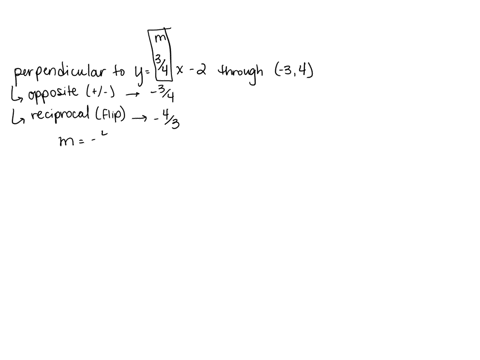 m
perpendicular to y = 3/4 x - 2 through (-3, 4)
↳ opposite (+/-) → - 3/4
↳ reciprocal (flip) → - 4/3
m = -